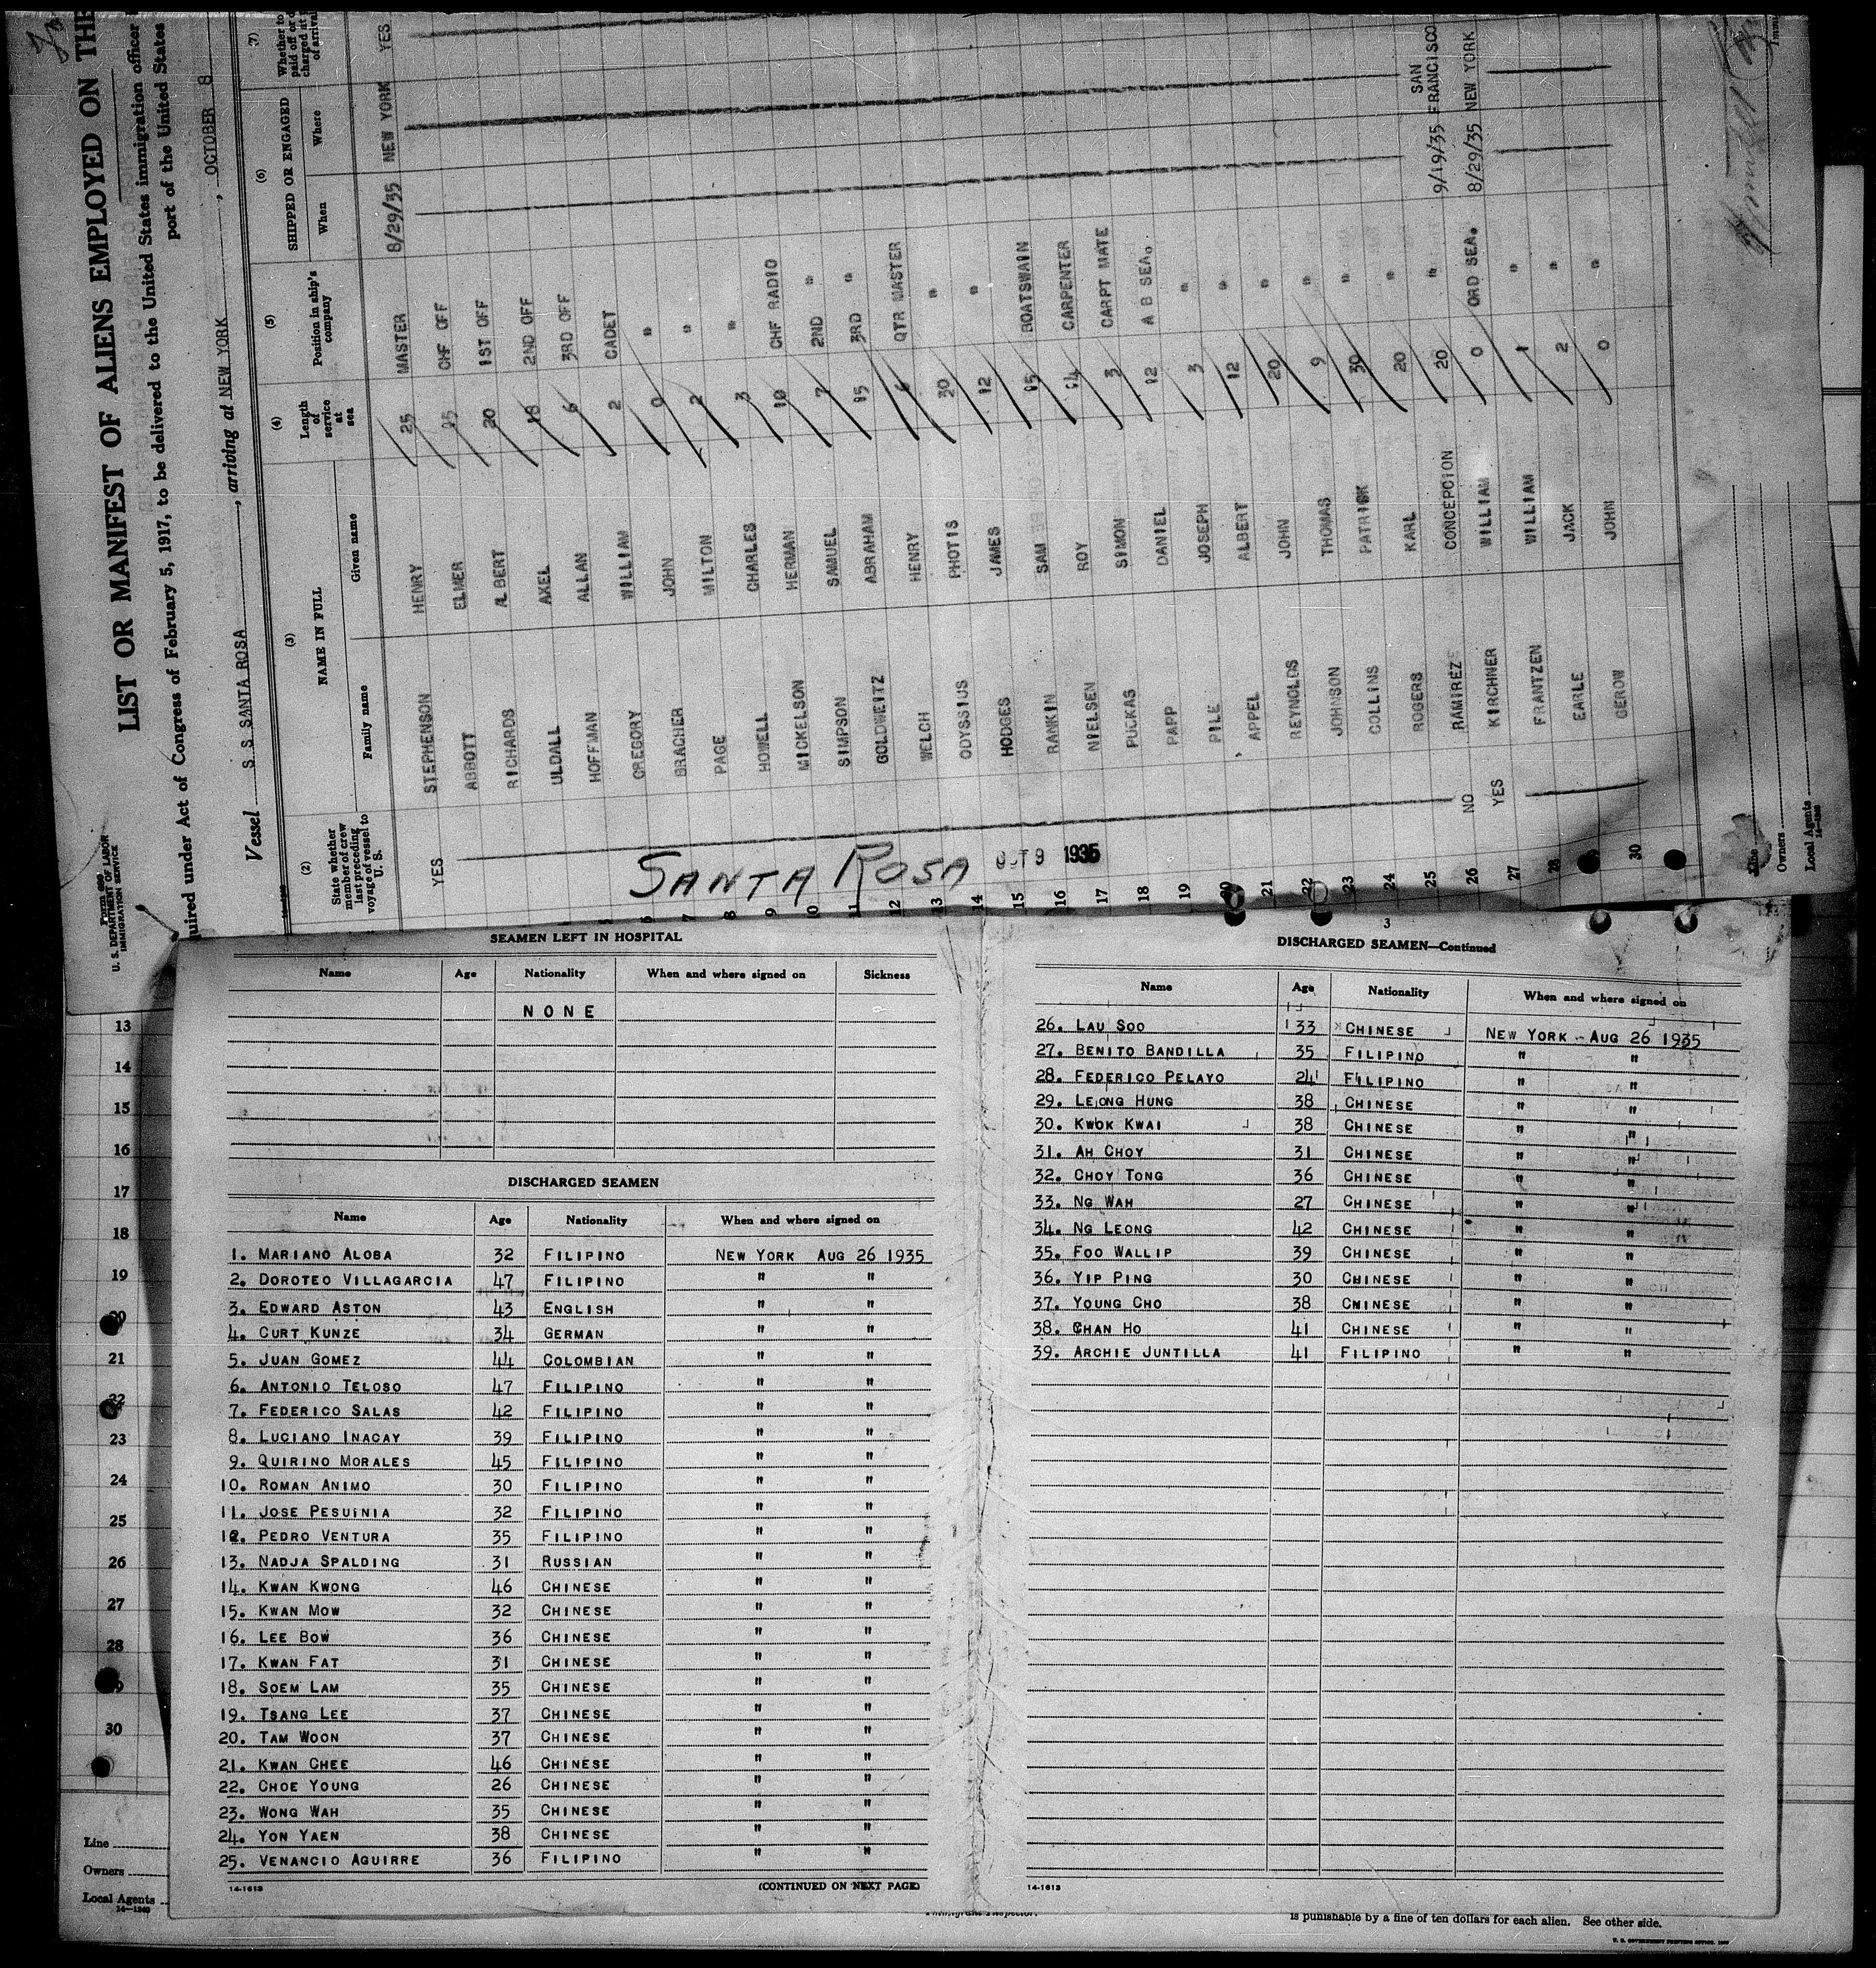 LIST OR MANIFEST OF ALIENS EMPLOYED ON THE
quired under Act of Congress of February 5, 1917, to be delivered to the United States immigration officer
port of the United States
Form 680
U. S. DEPARTMENT OF LABOR
IMMIGRATION SERVICE
Vessel S. S. SANTA ROSA, arriving at NEW YORK, OCTOBER 8
(2) (3) (4) (5) (6) (7)
State whether member of crew last preceding voyage of vessel to U. S.
NAME IN FULL
Family name Given name
Length of service at sea
Position in ship's company
SHIPPED OR ENGAGED
When Where
YES STEPHENSON HENRY 25 MASTER 8/29/35 NEW YORK YES
ABBOTT ELMER 15 CHF OFF
RICHARDS ALBERT 20 1ST OFF
ULDALL AXEL 18 2ND OFF
HOFFMAN ALLAN 6 3RD OFF
5 GREGORY WILLIAM 2 CADET
6 BRACHER JOHN 0 "
7 PAGE MILTON 2 "
8 HOWELL CHARLES 3 "
9 MICKELSON HERMAN 10 CHF RADIO
10 SIMPSON SAMUEL 7 2ND "
11 GOLDWEITZ ABRAHAM 15 3RD "
12 WELCH HENRY 6 QTR MASTER
13 ODYSSIUS PHOTIS 30 "
14 HODGES JAMES 12 "
15 RANKIN SAM 15 BOATSWAIN
16 NIELSEN ROY 14 CARPENTER
17 PUCKAS SIMON 3 CARPT MATE
18 PAPP DANIEL 12 A B SEA.
19 PILE JOSEPH 3 "
20 APPEL ALBERT 12 "
21 REYNOLDS JOHN 20 "
22 JOHNSON THOMAS 9 "
23 COLLINS PATRICK 30 "
24 ROGERS KARL 20 "
25 NO RAMIREZ CONCEPCION 20 " 9/19/35 SAN FRANCISCO
26 YES KIRCHNER WILLIAM 0 ORD SEA. 8/29/35 NEW YORK
27 FRANTZEN WILLIAM 1 "
28 EARLE JACK 2 "
GEROW JOHN 0 "
30
SANTA ROSA OCT 9 1935
Line
Owners
Local Agents
14—1240
SEAMEN LEFT IN HOSPITAL
Name Age Nationality When and where signed on Sickness
NONE
DISCHARGED SEAMEN
Name Age Nationality When and where signed on
1. MARIANO ALOBA 32 FILIPINO NEW YORK AUG 26 1935
2. DOROTEO VILLAGARCIA 47 FILIPINO " "
3. EDWARD ASTON 43 ENGLISH " "
4. CURT KUNZE 34 GERMAN " "
5. JUAN GOMEZ 44 COLOMBIAN " "
6. ANTONIO TELOSO 47 FILIPINO " "
7. FEDERICO SALAS 42 FILIPINO " "
8. LUCIANO INACAY 39 FILIPINO " "
9. QUIRINO MORALES 45 FILIPINO " "
10. ROMAN ANIMO 30 FILIPINO " "
11. JOSE PESUINIA 32 FILIPINO " "
12. PEDRO VENTURA 35 FILIPINO " "
13. NADJA SPALDING 31 RUSSIAN " "
14. KWAN KWONG 46 CHINESE " "
15. KWAN MOW 32 CHINESE " "
16. LEE BOW 36 CHINESE " "
17. KWAN FAT 31 CHINESE " "
18. SOEM LAM 35 CHINESE " "
19. TSANG LEE 37 CHINESE " "
20. TAM WOON 37 CHINESE " "
21. KWAN CHEE 46 CHINESE " "
22. CHOE YOUNG 26 CHINESE " "
23. WONG WAH 35 CHINESE " "
24. YON YAEN 38 CHINESE " "
25. VENANCIO AGUIRRE 36 FILIPINO " "
14-1613 (CONTINUED ON NEXT PAGE)
3
DISCHARGED SEAMEN—Continued
Name Age Nationality When and where signed on
26. LAU SOO 33 CHINESE NEW YORK - AUG 26 1935
27. BENITO BANDILLA 35 FILIPINO " "
28. FEDERICO PELAYO 24 FILIPINO " "
29. LEONG HUNG 38 CHINESE " "
30. KWOK KWAI 38 CHINESE " "
31. AH CHOY 31 CHINESE " "
32. CHOY TONG 36 CHINESE " "
33. NG WAH 27 CHINESE " "
34. NG LEONG 42 CHINESE " "
35. FOO WALLIP 39 CHINESE " "
36. YIP PING 30 CHINESE " "
37. YOUNG CHO 38 CHINESE " "
38. CHAN HO 41 CHINESE " "
39. ARCHIE JUNTILLA 41 FILIPINO " "
14-1613
13
14
15
16
17
18
19
20
21
22
23
24
25
26
27
28
30
Line
Owners
Local Agents
14—1240
Immigrant Inspector.
is punishable by a fine of ten dollars for each alien. See other side.